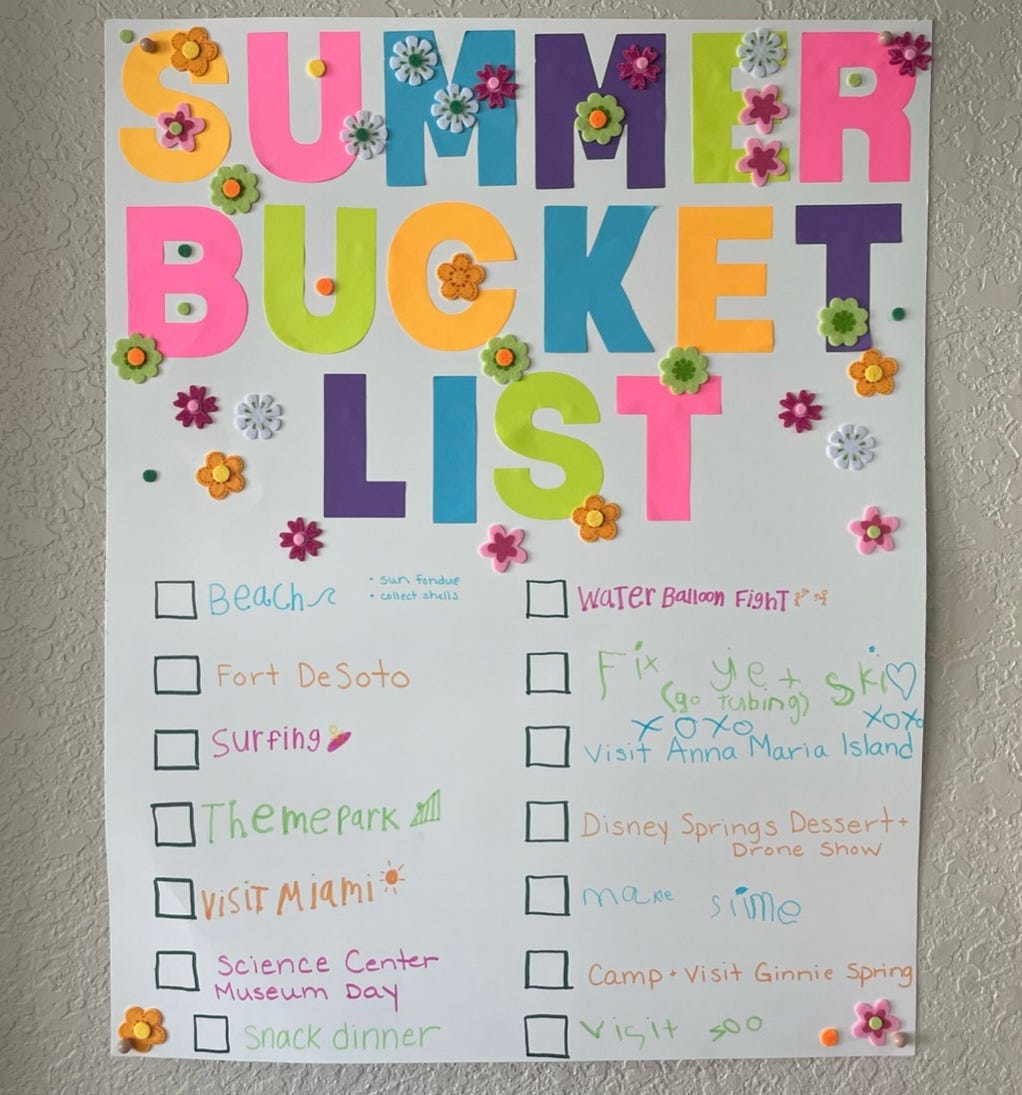 SUMMER
BUCKET
LIST
Beach
• sun fondue
• collect shells
Fort DeSoto
Surfing
Themepark
Visit Miami
Science Center
Museum Day
Snack dinner
Water Balloon Fight
Fix jet ski
(go tubing)
xoxo xoxo
Visit Anna Maria Island
Disney Springs Dessert +
Drone Show
make slime
Camp + Visit Ginnie Spring
Visit zoo